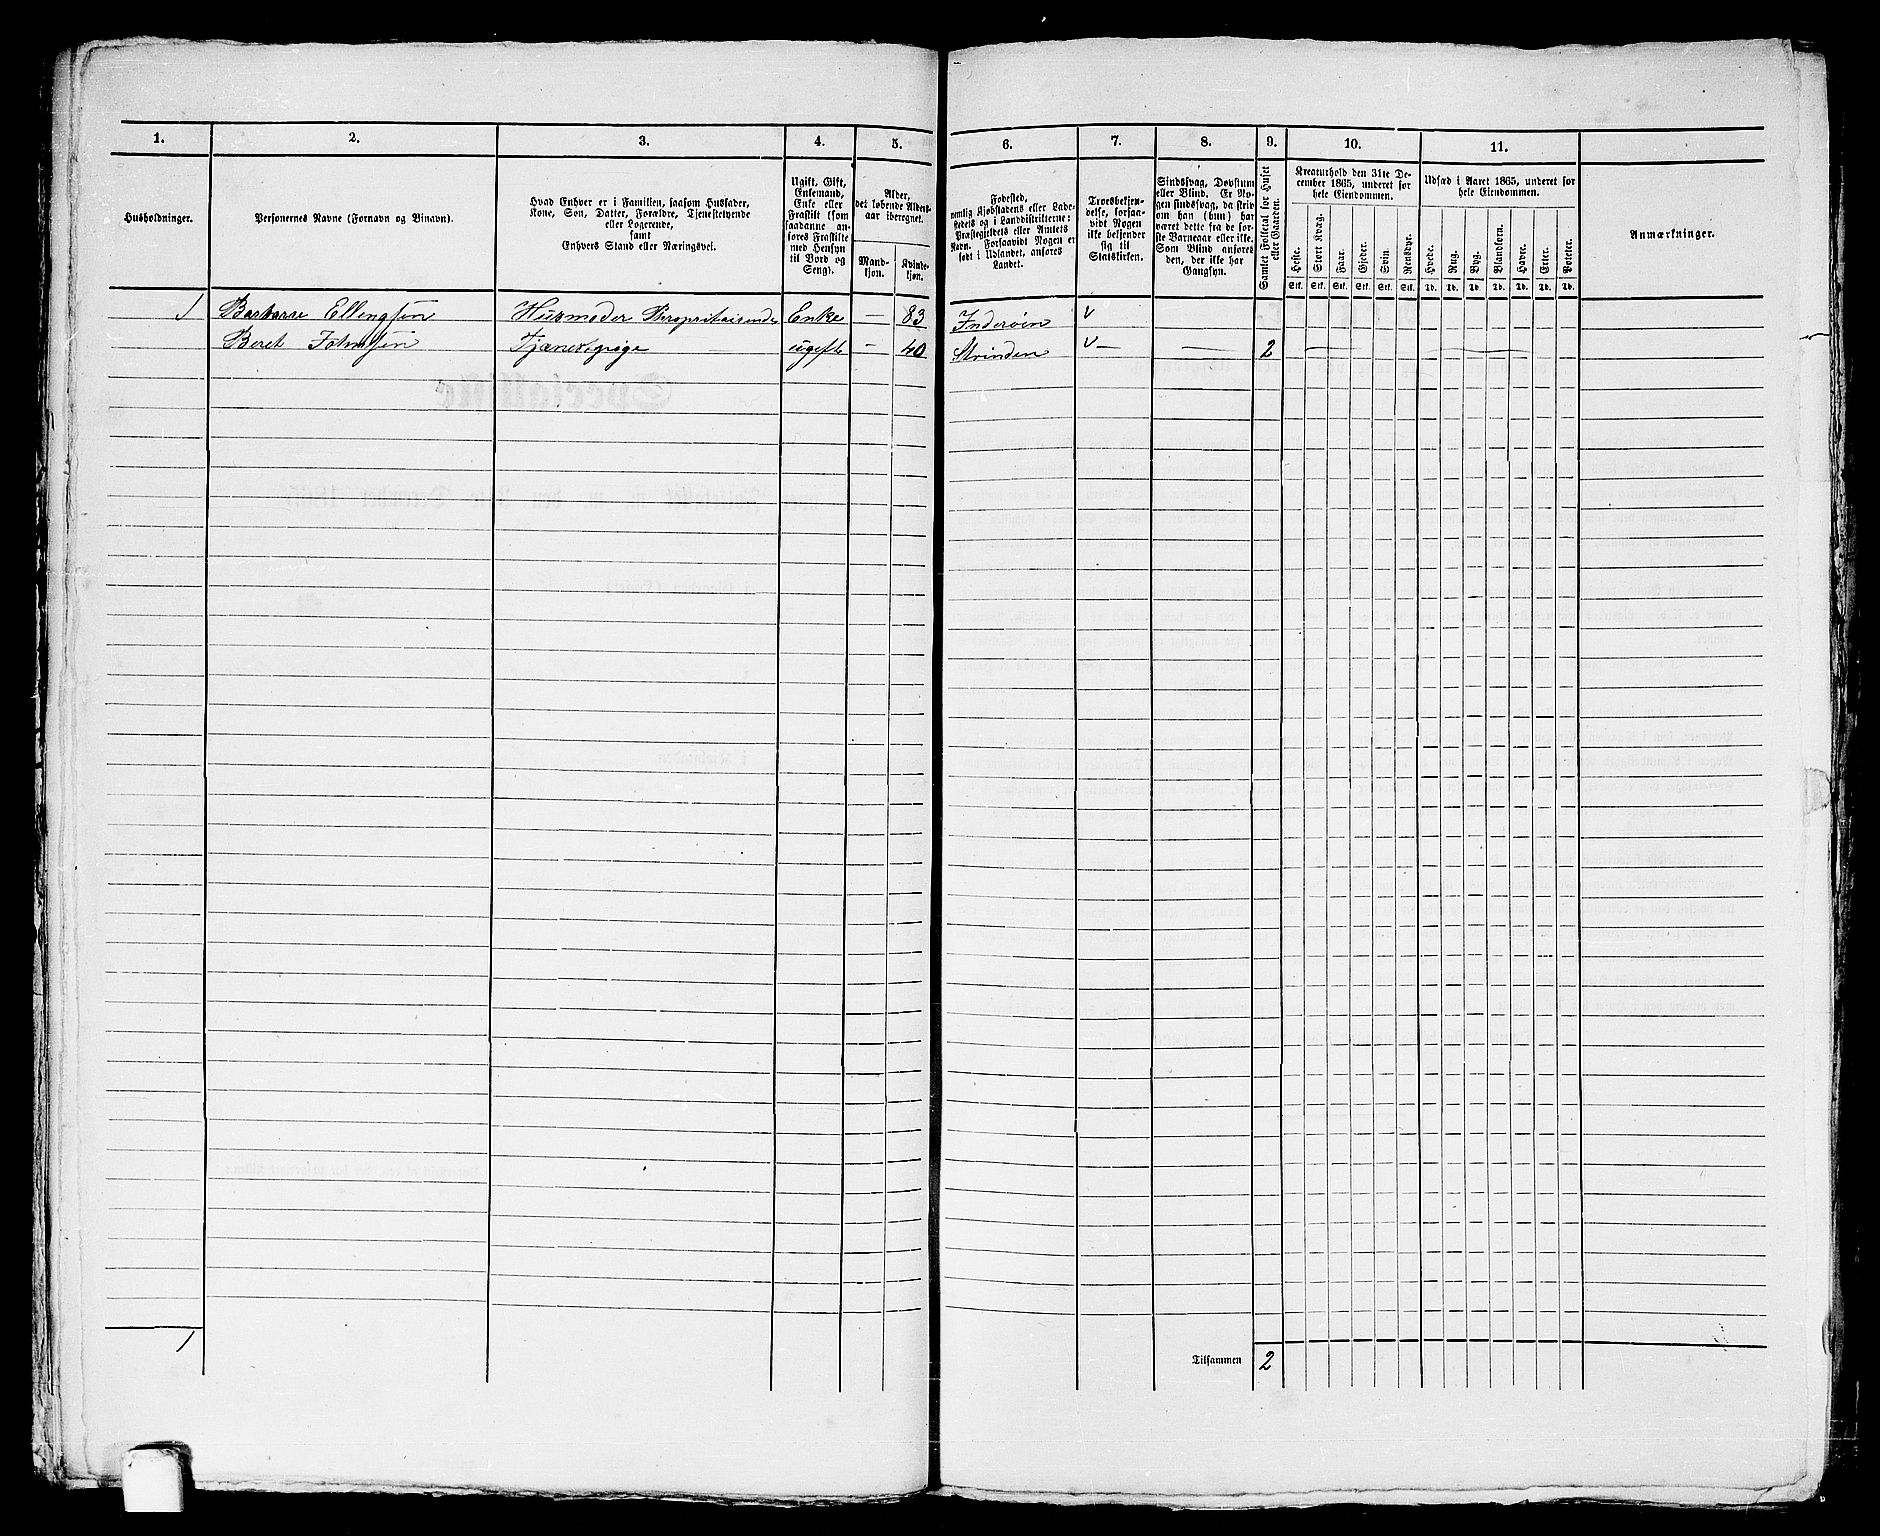 1. 2. 3. 4. 5. 6. 7. 8. 9. 10. 11.
Husholdninger.
Personernes Navne (Fornavn og Binavn).
Hvad Enhver er i Familien, saasom Husfader,
Kone, Søn, Datter, Forældre, Tjenestetyende
eller Logerende,
samt
Enhvers Stand eller Næringsvei.
Ugift, Gift,
Enkemand,
Enke eller
Fraskilt (som
saadanne an-
føres Fraskilte
med Hensyn
til Bord og
Seng).
Alder,
det løbende Alders-
aar iberegnet.
Mand-
kjøn.
Kvinde-
kjøn.
Fødested,
nemlig Kjøbstadens eller Lade-
stedets og i Landdistrikterne:
Præstegjeldets eller Amtets
Navn. Forsaavidt Nogen er
født i Udlandet, anføres
Landet.
Troesbekjen-
delse, forsaa-
vidt Nogen
ikke bekjender
sig til
Statskirken.
Sindssvag, Døvstum
eller Blind. Er No-
gen sindssvag, da skriv
om han (hun) har
været dette fra de før-
ste Barneaar eller ikke.
Som Blind anføres
den, der ikke har
Gangsyn.
Samlet Folketal for Huset
eller Gaarden.
Kreaturhold den 31te De-
cember 1865, underet for
hele Eiendommen.
Heste. Stort Kvæg. Faar. Gjeder. Svin. Rensdyr.
Stk. Stk. Stk. Stk. Stk. Stk.
Udsæd i Aaret 1865, underet for
hele Eiendommen.
Hvede. Rug. Byg. Blandkorn. Havre. Erter. Poteter.
Td. Td. Td. Td. Td. Td. Td.
Anmærkninger.
1 Barbarre Ellingsen Husmoder Enke — 83 Inderøen v
Beret Johnsen Tjenestepige ugift — 40 Strinden v — — 2 — —
1 Tilsammen 2